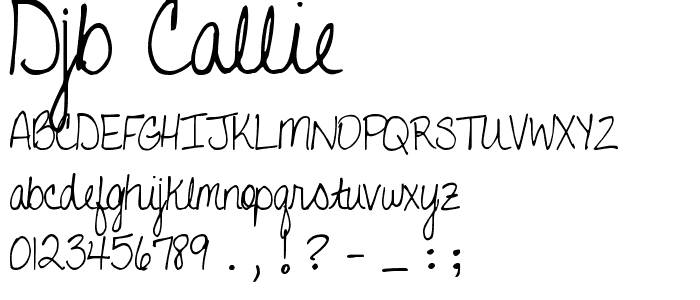 Djb Callie
ABCDEFGHIJKLMNOPQRSTUVWXYZ
abcdefghijklmnopqrstuvwxyz
0123456789 . , ! ? - _ : ;